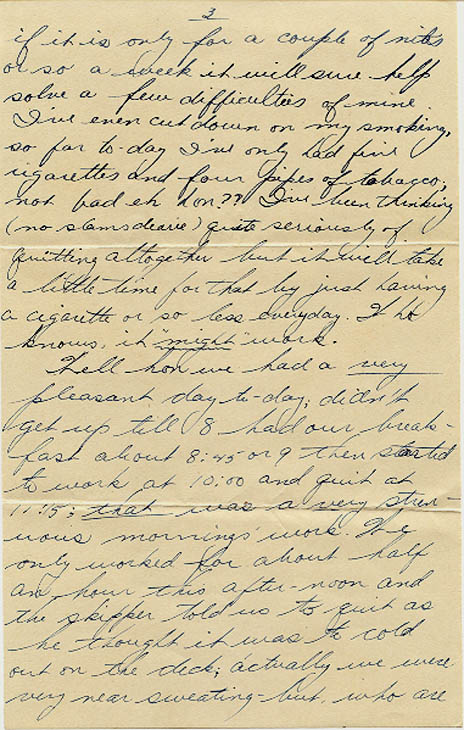 3
if it is only for a couple of nites
or so a week it will sure help
solve a few difficulties of mine.
I've even cut down on my smoking,
so far to-day I've only had five
cigarettes and four pipes of tobacco;
not bad eh hon?? I've been thinking
(no slams dearie) quite seriously of
quitting altogether but it will take
a little time for that by just having
a cigarette or so less everyday. Who
knows, it "might" work.
Well hon we had a very
pleasant day to-day; didn't
get up till 8 had our break-
fast about 8:45 or 9 then started
to work at 10:00 and quit at
11:15; that was a very stren-
uous mornings' work. We
only worked for about half
an hour this after-noon and
the skipper told us to quit as
he thought it was to cold
out on the deck; actually we were
very near sweating - but, who are